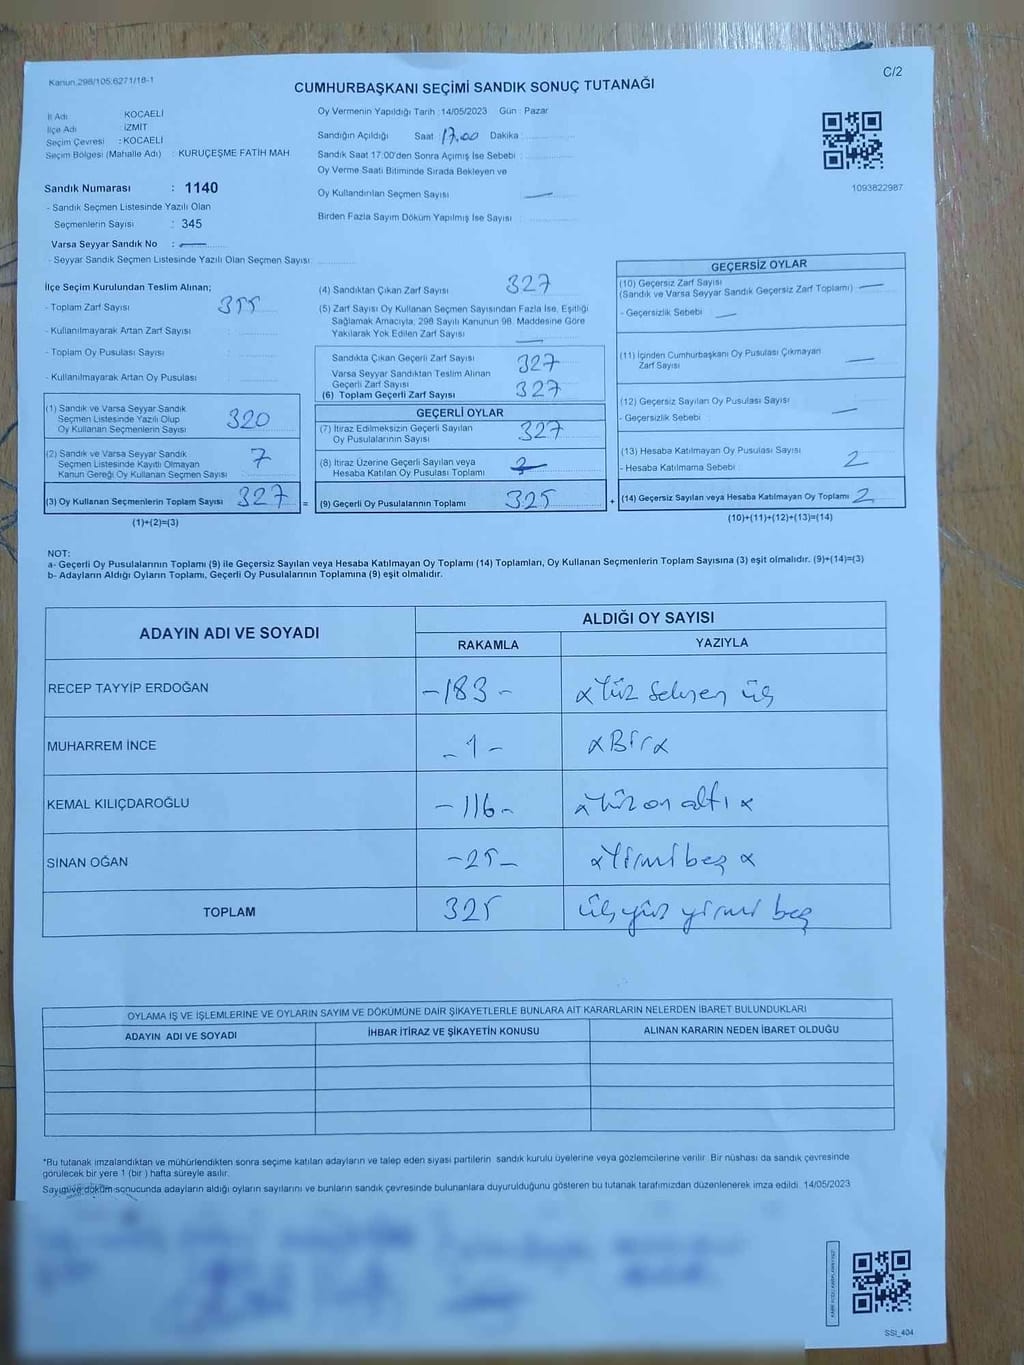 Kanun 298/105;6271/18-1
C/2
CUMHURBAŞKANI SEÇİMİ SANDIK SONUÇ TUTANAĞI
İl Adı KOCAELİ
İlçe Adı : İZMİT
Seçim Çevresi : KOCAELİ
Seçim Bölgesi (Mahalle Adı) : KURUÇEŞME FATİH MAH.
Sandık Numarası : 1140
- Sandık Seçmen Listesinde Yazılı Olan
Seçmenlerin Sayısı : 345
Varsa Seyyar Sandık No :
- Seyyar Sandık Seçmen Listesinde Yazılı Olan Seçmen Sayısı:
Oy Vermenin Yapıldığı Tarih :14/05/2023 Gün : Pazar
Sandığın Açıldığı Saat : 17.00 Dakika :
Sandık Saat 17:00'den Sonra Açımış İse Sebebi :
Oy Verme Saati Bitiminde Sırada Bekleyen ve
Oy Kullandırılan Seçmen Sayısı :
Birden Fazla Sayım Döküm Yapılmış İse Sayısı :
1093822987
İlçe Seçim Kurulundan Teslim Alınan;
- Toplam Zarf Sayısı : 355
- Kullanılmayarak Artan Zarf Sayısı :
- Toplam Oy Pusulası Sayısı :
- Kullanılmayarak Artan Oy Pusulası :
(1) Sandık ve Varsa Seyyar Sandık
Seçmen Listesinde Yazılı Olup
Oy Kullanan Seçmenlerin Sayısı 320
(2) Sandık ve Varsa Seyyar Sandık
Seçmen Listesinde Kayıtlı Olmayan
Kanun Gereği Oy Kullanan Seçmen Sayısı 7
(3) Oy Kullanan Seçmenlerin Toplam Sayısı 327 =
(1)+(2)=(3)
(4) Sandıktan Çıkan Zarf Sayısı 327
(5) Zarf Sayısı Oy Kullanan Seçmen Sayısından Fazla İse, Eşitliği
Sağlamak Amacıyla, 298 Sayılı Kanunun 98. Maddesine Göre
Yakılarak Yok Edilen Zarf Sayısı
Sandıkta Çıkan Geçerli Zarf Sayısı 327
Varsa Seyyar Sandıktan Teslim Alınan
Geçerli Zarf Sayısı
(6) Toplam Geçerli Zarf Sayısı 327
GEÇERLİ OYLAR
(7) İtiraz Edilmeksizin Geçerli Sayılan
Oy Pusulalarının Sayısı 327
(8) İtiraz Üzerine Geçerli Sayılan veya
Hesaba Katılan Oy Pusulası Toplamı
(9) Geçerli Oy Pusulalarının Toplamı 325 +
GEÇERSİZ OYLAR
(10) Geçersiz Zarf Sayısı
(Sandık ve Varsa Seyyar Sandık Geçersiz Zarf Toplamı)
- Geçersizlik Sebebi :
(11) İçinden Cumhurbaşkanı Oy Pusulası Çıkmayan
Zarf Sayısı
(12) Geçersiz Sayılan Oy Pusulası Sayısı
- Geçersizlik Sebebi :
(13) Hesaba Katılmayan Oy Pusulası Sayısı 2
- Hesaba Katılmama Sebebi :
(14) Geçersiz Sayılan veya Hesaba Katılmayan Oy Toplamı 2
(10)+(11)+(12)+(13)=(14)
NOT:
a- Geçerli Oy Pusulalarının Toplamı (9) ile Geçersiz Sayılan veya Hesaba Katılmayan Oy Toplamı (14) Toplamları, Oy Kullanan Seçmenlerin Toplam Sayısına (3) eşit olmalıdır. (9)+(14)=(3)
b- Adayların Aldığı Oyların Toplamı, Geçerli Oy Pusulalarının Toplamına (9) eşit olmalıdır.
ADAYIN ADI VE SOYADI ALDIĞI OY SAYISI
RAKAMLA YAZIYLA
RECEP TAYYİP ERDOĞAN -183- Yüz seksen üç
MUHARREM İNCE -1- Bir
KEMAL KILIÇDAROĞLU -116- Yüz on altı
SİNAN OĞAN -25- Yirmi beş
TOPLAM 325 üçyüz yirmi beş
OYLAMA İŞ VE İŞLEMLERİNE VE OYLARIN SAYIM VE DÖKÜMÜNE DAİR ŞİKAYETLERLE BUNLARA AİT KARARLARIN NELERDEN İBARET BULUNDUKLARI
ADAYIN ADI VE SOYADI İHBAR İTİRAZ VE ŞİKAYETİN KONUSU ALINAN KARARIN NEDEN İBARET OLDUĞU
*Bu tutanak imzalandıktan ve mühürlendikten sonra seçime katılan adayların ve talep eden siyasi partilerin sandık kurulu üyelerine veya gözlemcilerine verilir. Bir nüshası da sandık çevresinde
görülecek bir yere 1 (bir) hafta süreyle asılır.
Sayım ve döküm sonucunda adayların aldığı oyların sayılarını ve bunların sandık çevresinde bulunanlara duyurulduğunu gösteren bu tutanak tarafımızdan düzenlenerek imza edildi. 14/05/2023
SSI_404